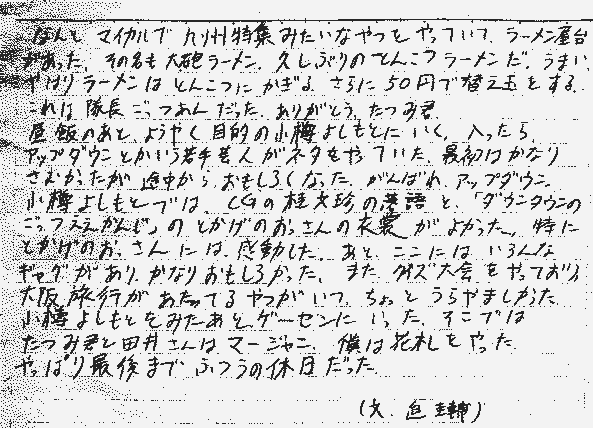 なんと、マイカルで九州特集みたいなやつをやっていて、ラーメン屋台
があった。その名も大砲ラーメン。久しぶりのとんこつラーメンだ。うまい。
やはりラーメンはとんこつにかぎる。さらに50円で替え玉をする。
これは隊長ごっつあんだった。ありがとう、たつみ君。
昼飯のあと、ようやく目的の小樽よしもとにいく。入ったら
アップダウンとかいう若手芸人がネタをやっていた。最初はかなり
さむかったが途中からおもしろくなった。がんばれ、アップダウン。
小樽よしもとでは、CGの桂文珍の落語と、「ダウンタウンの
ごっつええかんじ」のとかげのおっさんの衣装がよかった。特に
とかげのおっさんには感動した。あと、ここにはいろんな
ギャグがあり、かなりおもしろかった。また、クイズ大会をやっており
大阪旅行があたってるやつがいて、ちょっとうらやましかった。
小樽よしもとをみたあと、ゲーセンにいった。そこでは
たつみ君と田井さんはマージャン、僕は花札をやった。
やっぱり最後まで、ふつうの休日だった。
(文、 圭輔)